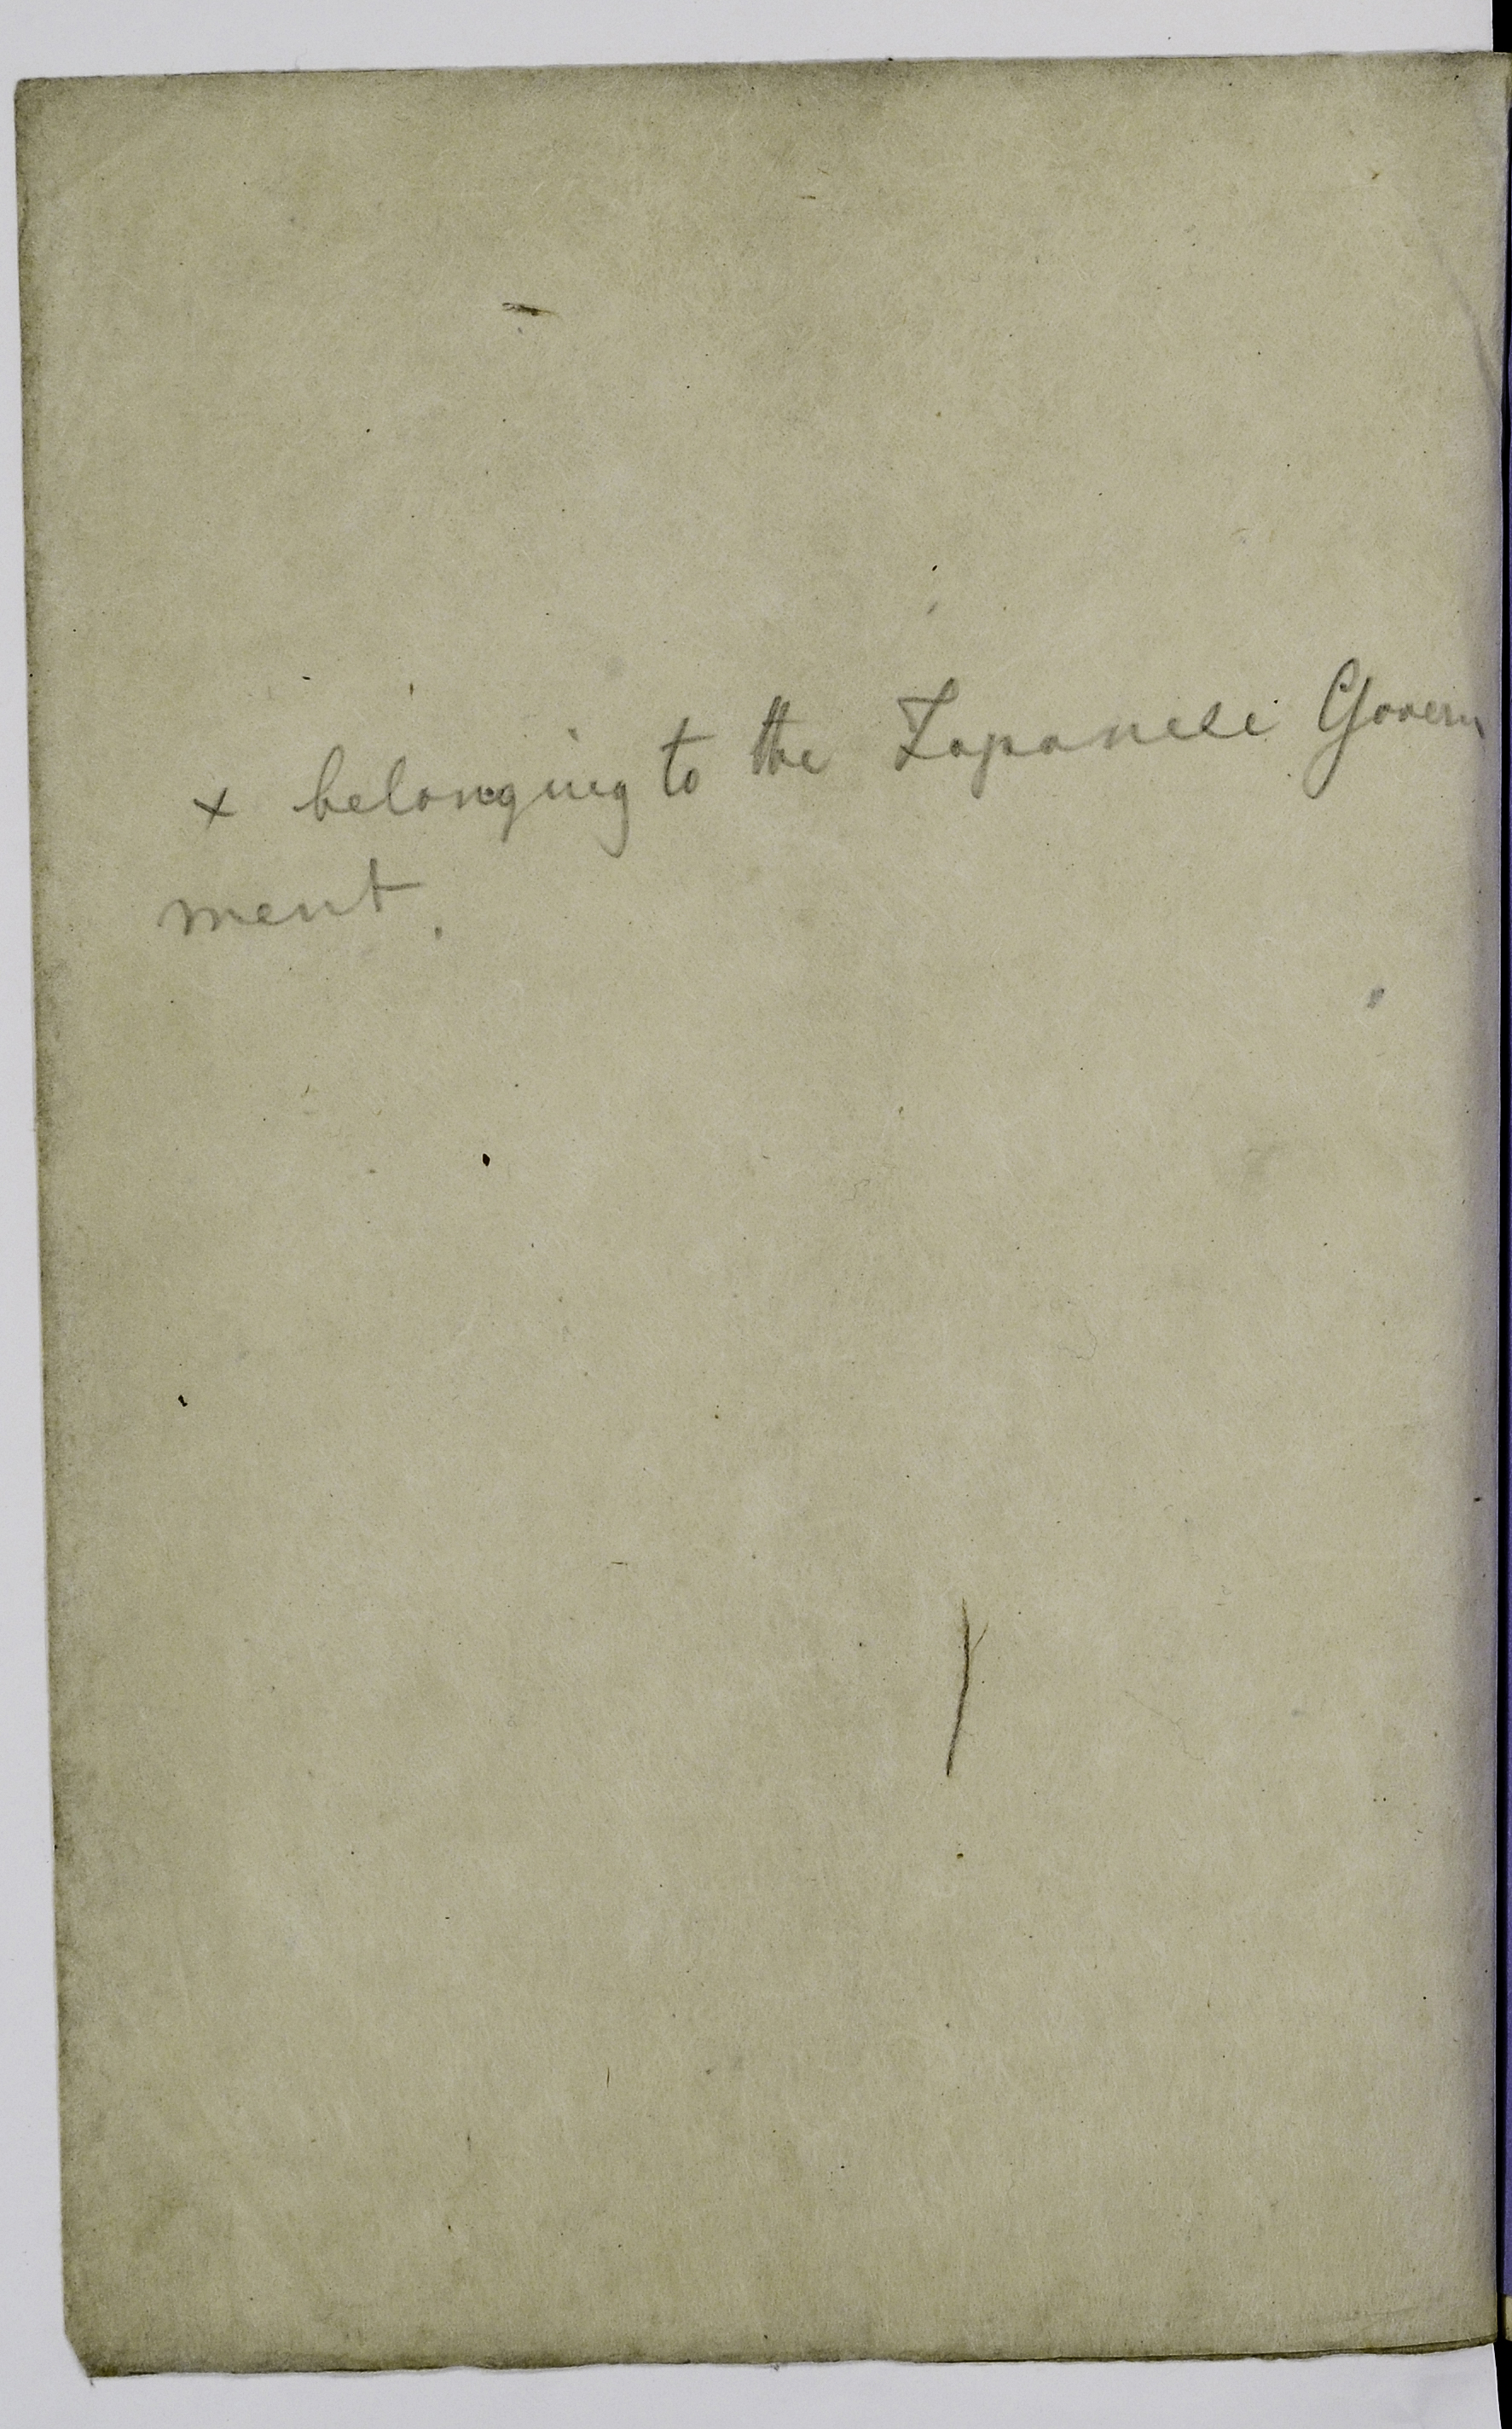 x belonging to the Japanese Govern
ment.